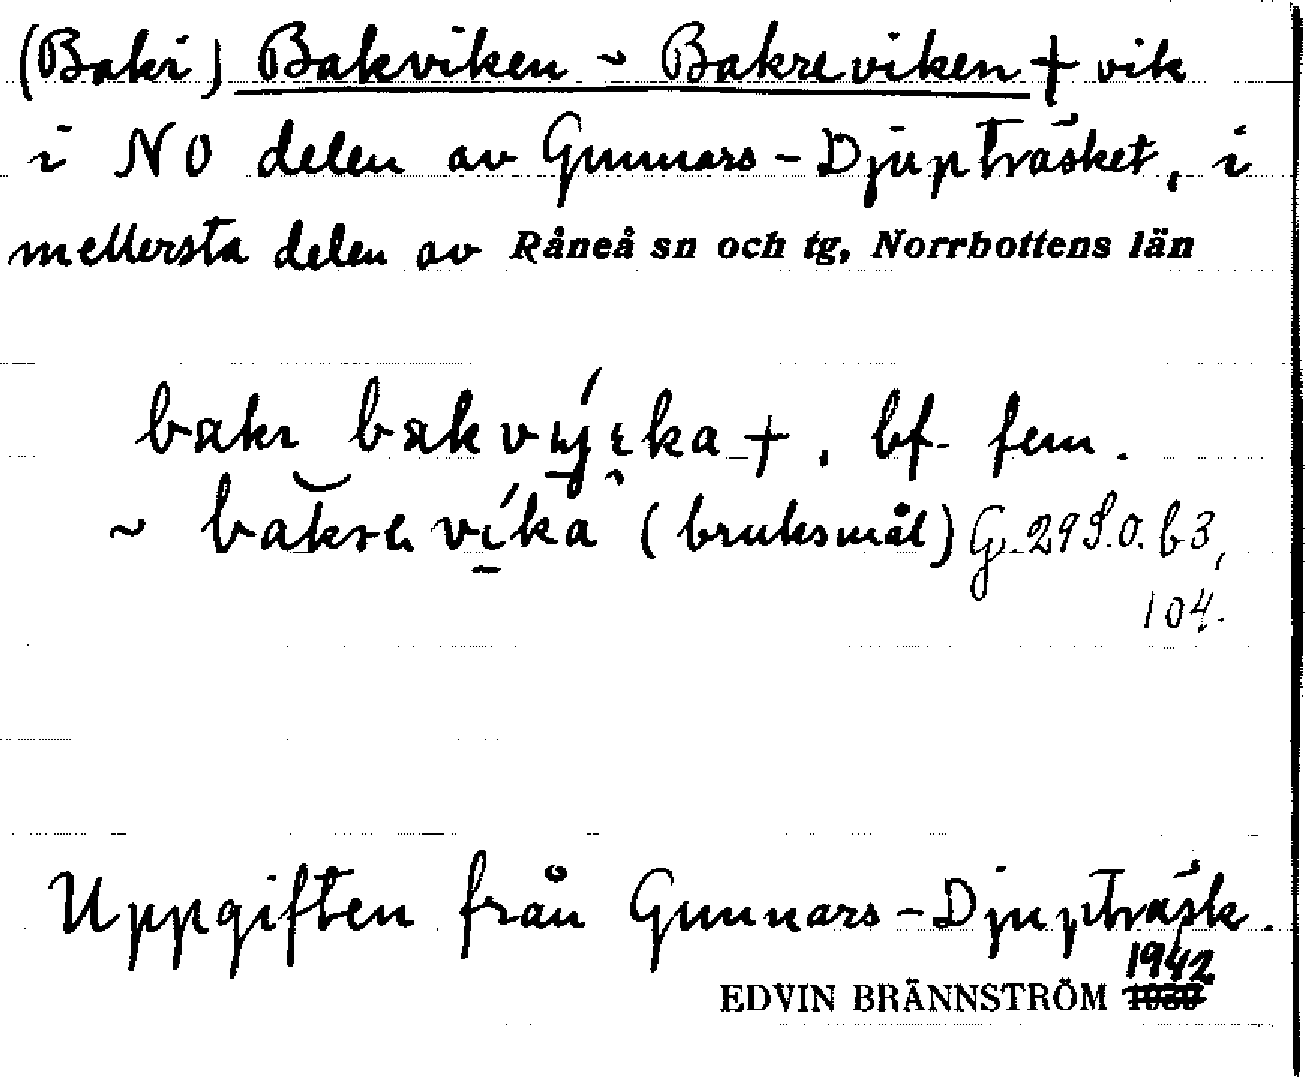 (Bakri) Bakviken ~ Bakreviken + vik
i NO delen av Gunnars-Djupträsket, i
mellersta delen av Råneå sn och tg, Norrbottens län
bf. fem.
~ (bruksmål) G. 29 S.O. b 3,
104.
Uppgiften från Gunnars-Djupträsk.
1942
EDVIN BRÄNNSTRÖM